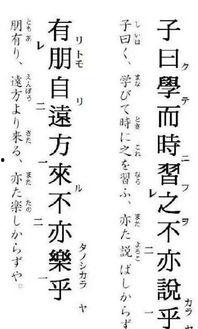 子曰學而時習之不亦說乎
子曰く、学びて時に之を習ふ、亦た説ばしからず
有朋自遠方來不亦樂乎
朋有り、遠方より来る、亦た楽しからずや。